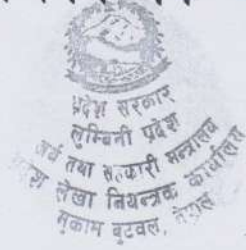 प्रदेश सरकार
लुम्बिनी प्रदेश
अर्थ तथा सहकारी मन्त्रालय
प्रदेश लेखा नियन्त्रक कार्यालय
मुकाम बुटवल, नेपाल